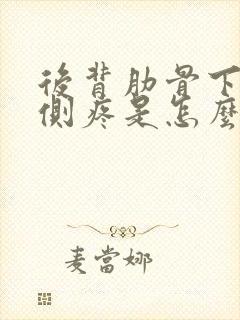 後背肋骨下
側疼是怎麼
麦當娜